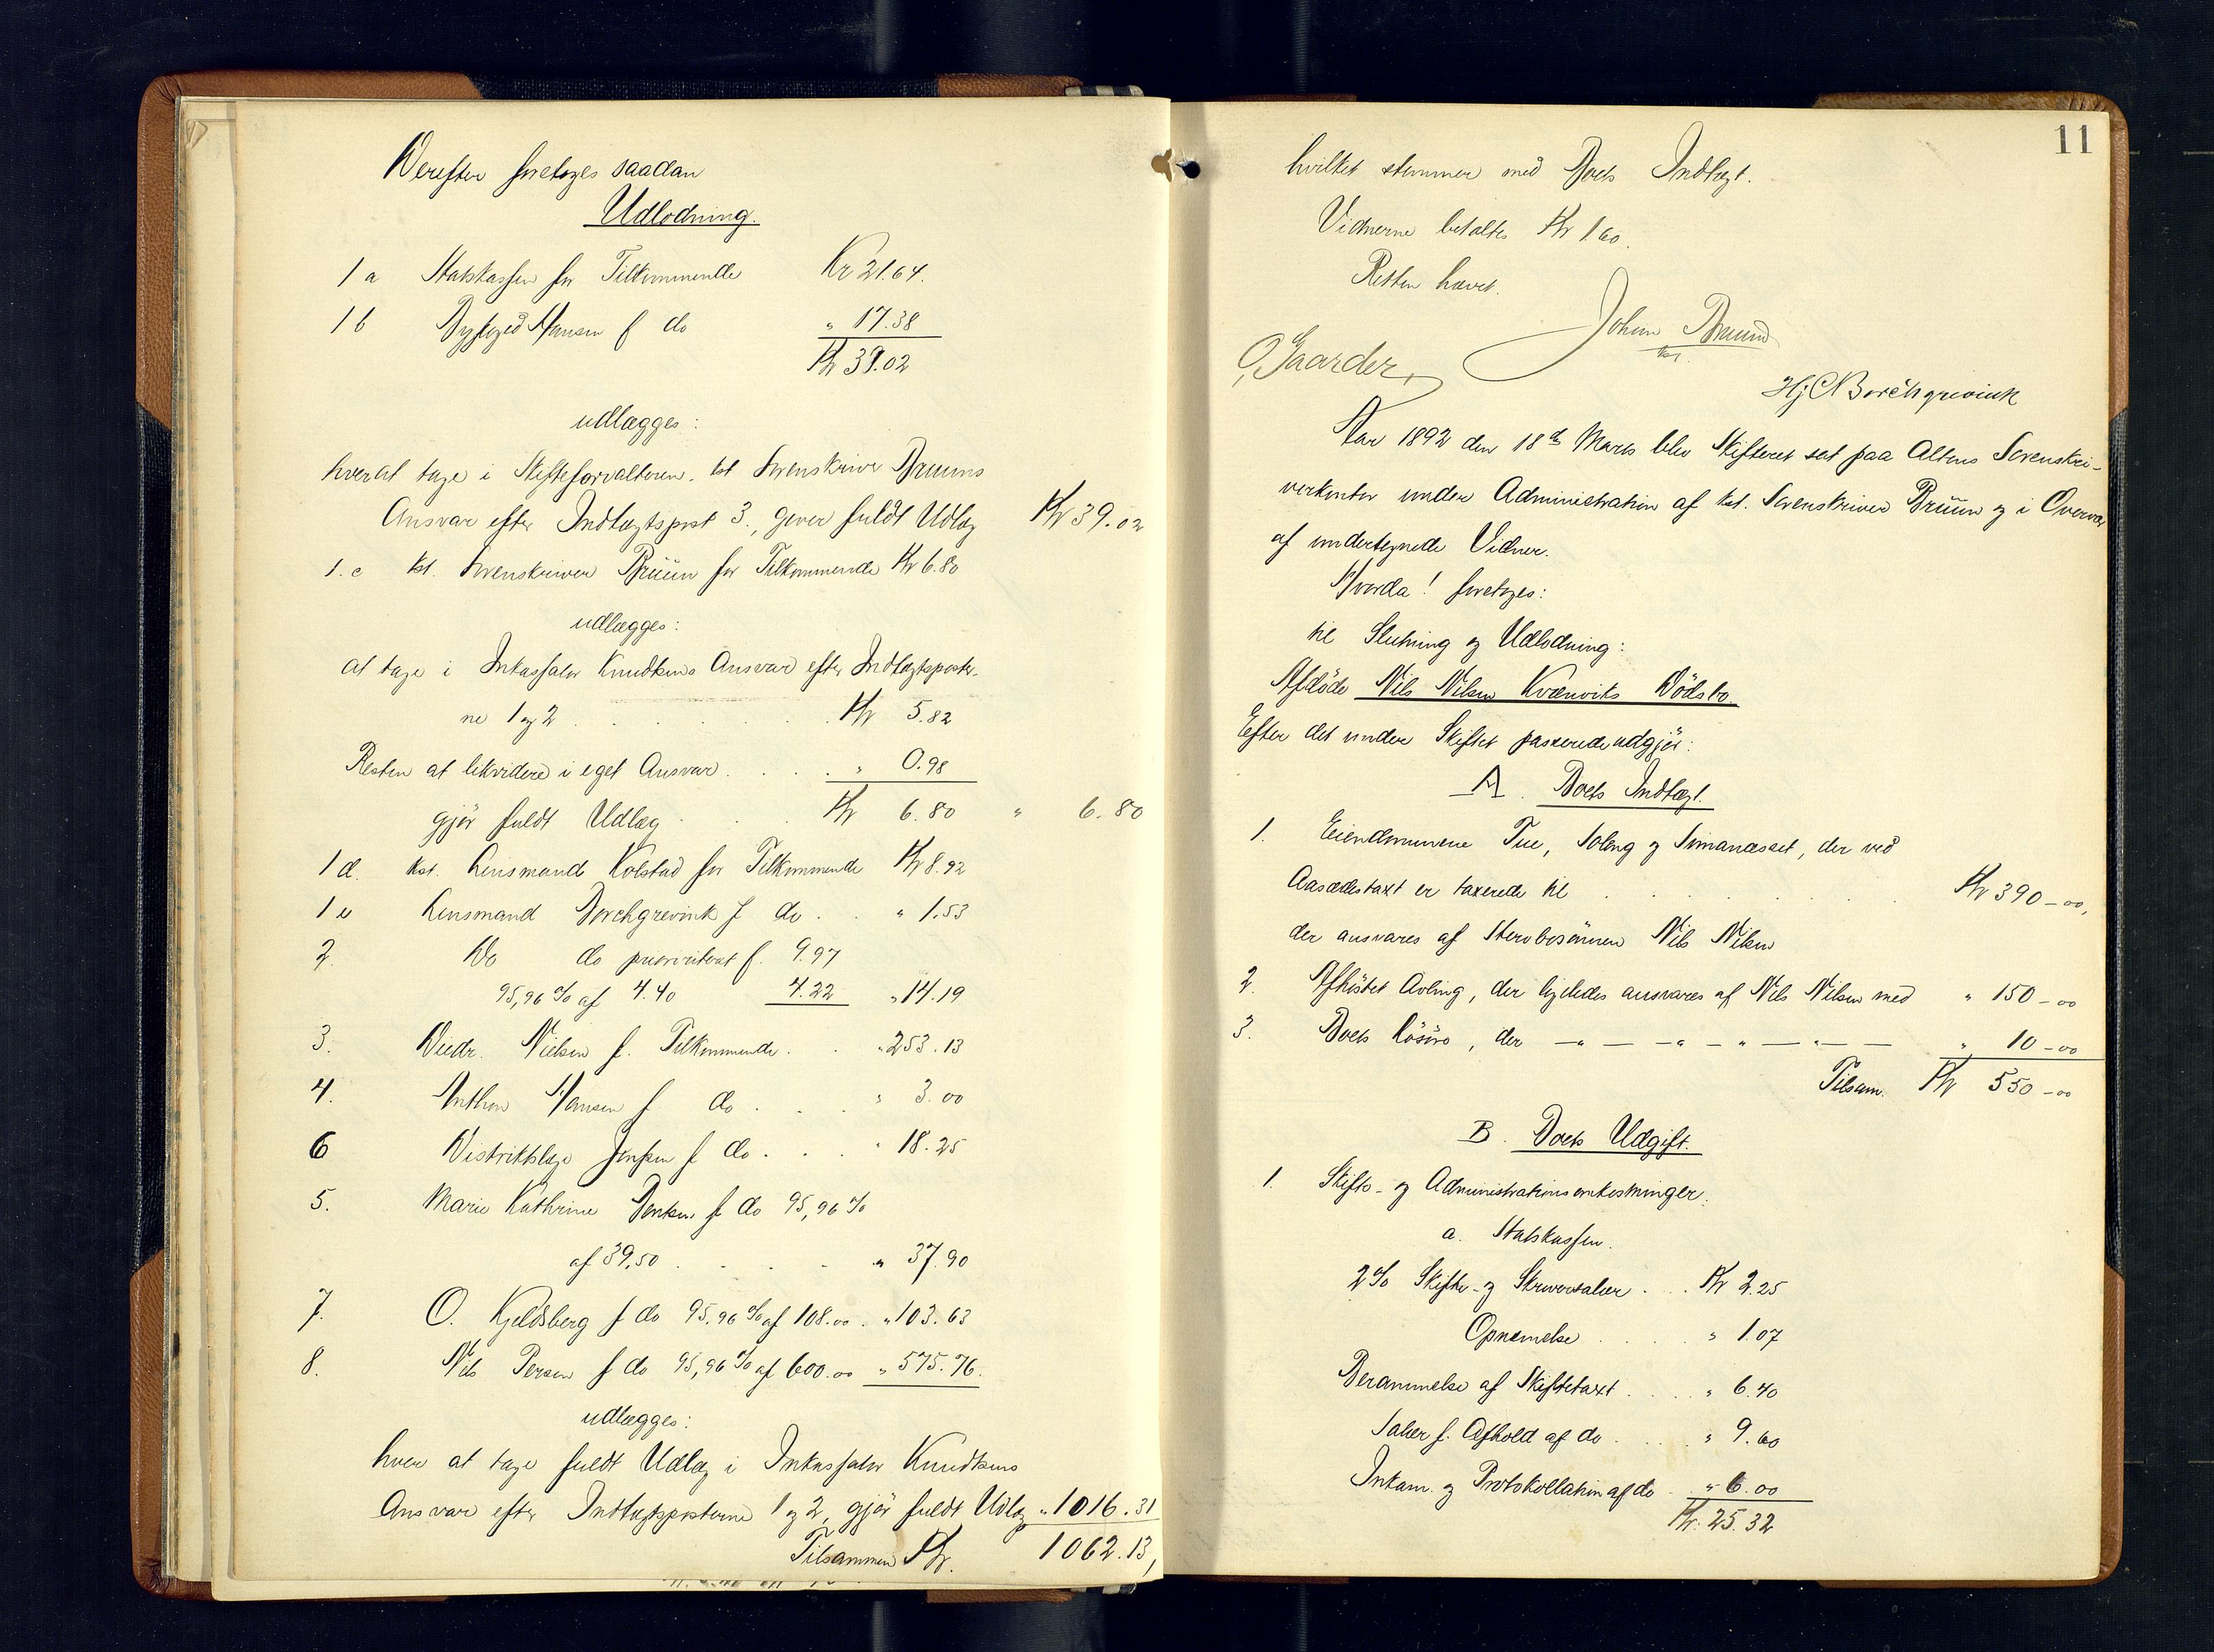 Derefter foretoges saadan
Udlodning.
1 a Statskassen for Tilkommende Kr 21.64.
1 b Bygfoged Hansen f do " 17.38
Kr 39.02
udlægges:
hver at tage i Skifteforvalteren, kst Sorenskriver Bruuns
Ansvar efter Indtægtspost 3., giver fuldt Udlæg Kr 39.02
1.c kst. Sorenskriver Brüün for Tilkommende Kr 6.80
udlægges:
at tage i Inkassator Knudtsens Ansvar efter Indtægtsposter-
ne 1 og 2 . . . . . Kr 5.82
Resten at likvidere i eget Ansvar . . . . " 0.98
gjør fuldt Udlæg . . . Kr 6.80 " 6.80
1 d. kst. Lensmand Kolstad for Tilkommende Kr 8.92
1 e Lensmand Borchgrevink f do . . " 1.53
2. Do do prioriteret f. 9.97
95,96 % af 4.40 4.22 " 14.19
3. Diedr. Nielsen f. Tilkommende . . " 253.13
4. Anthon Hansen f do . . . " 3.00
6 Distriktslæge Jenssen f do . . . " 18.25
5. Marie Kathrine Bentsen f do 95,96 %
af 39,50 . . . . " 37.90
7. O. Kjeldsberg f do 95.96 % af 108.00 . " 103.63
8. Nils Persen f do 95,96 % af 600.00 " 575.76.
udlægges:
hver at tage fuldt Udlæg i Inkassator Knudtsens
Ansvar efter Indtægtsposterne 1 og 2, gjør fuldt Udlæg " 1016.31
Tilsammen Kr. 1062.13,
11
hvilket stemmer med Boets Indtægt.
Vidnerne betaltes Kr 1.60.
Retten hævet.
Johan Bruun
kst.
O, Gaarder,
Hj C Borchgrevink
Aar 1892 den 18de Marts blev Skifteret sat paa Altens Sorenskri-
verkontor under Administration af kst. Sorenskriver Brüün og i Overvær
af undertegnede Vidner.
Hvorda! foretoges:
til Slutning og Udlodning:
Afdöde Nils Nilsen Kvænviks Dödsbo.
Efter det under Skiftet passerede udgjör:
A. Boets Indtægt.
1. Eiendommene Tue, Soleng og Simanæsset, der ved
Aasædestaxt er taxerede til . . . . . . Kr 390-00,
der ansvares af Stervbosönnen Nils Nilsen
2. Afhöstet Avling, der ligeledes ansvares af Nils Nilsen med " 150-00
3. Boets Lösöre, der —"— —"— " — "— — " 10-00
Tilsam. Kr 550-00
B. Boets Udgift.
1. Skifts- og Administrationsomkostninger:
a. Statskassen.
2 % Skifte- og Skriversalær . . . Kr 2.25
Opnævnelse . . . . " 1.07
Berammelse af Skiftetaxt . . . . " 6.40
Salær f. Afhold af do . . . . " 9.60
Inkam. og Protokollation af do . " 6.00
Kr. 25.32